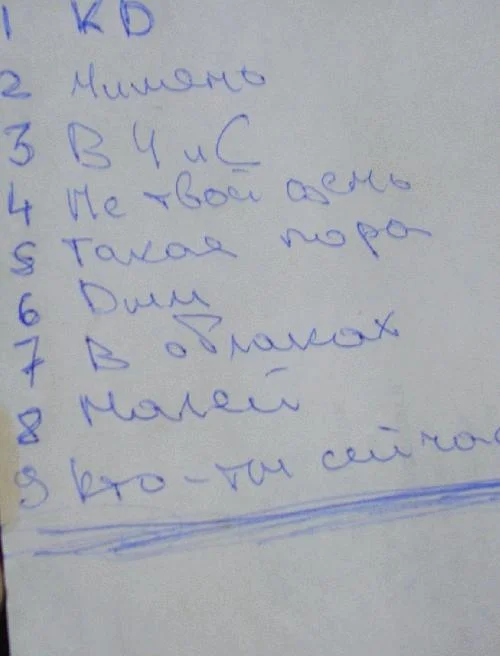 1 KD
2 Чишянь
3 В 4 и С
4 Не твой день
5 Такая пора
6 Дни
7 В облаках
8 Налей
9 Кто-ты сейчас